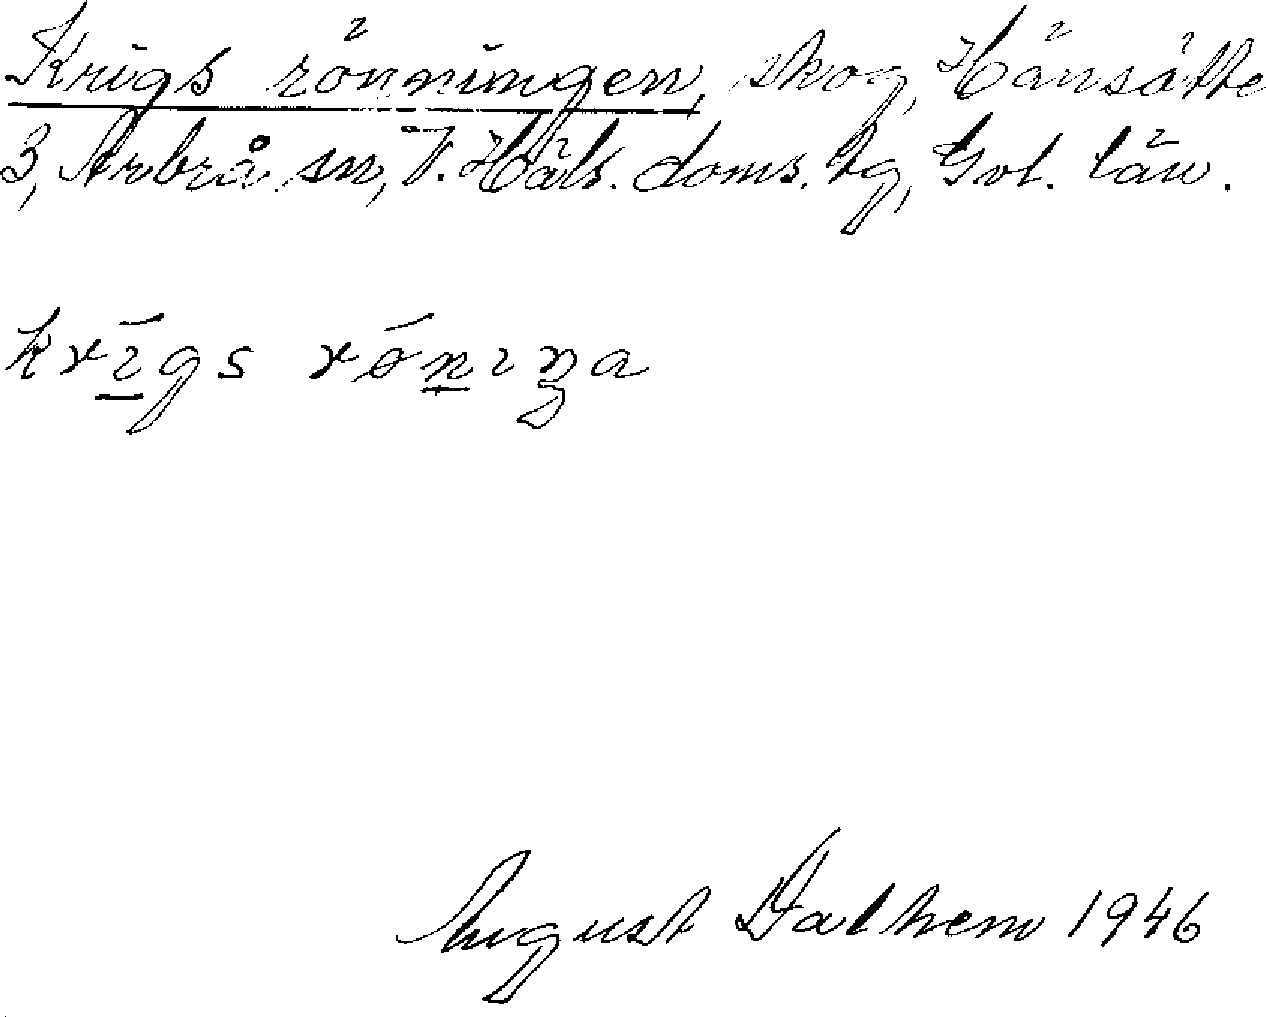 Krigs rönningen, skog, Hänsätte
3, Arbrå sn, V. Häls. doms. hg, Gvl. län.
krīgs rö́nıŋa
August Dalhem 1946